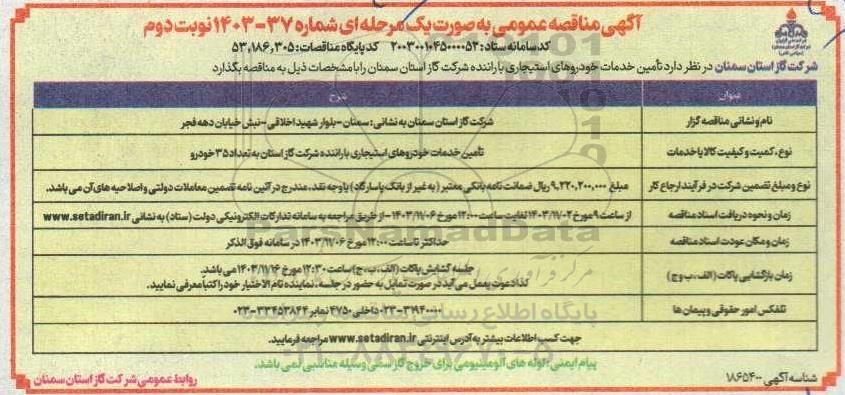 آگهی مناقصه عمومی به صورت یک مرحله ای شماره ۳۷-۱۴۰۳ نوبت دوم
کد سامانه ستاد: ۲۰۰۳۰۰۱۰۴۵۰۰۰۰۵۲ کد پایگاه مناقصات: ۵۳,۱۸۶,۳۰۵
شرکت گاز استان سمنان در نظر دارد تأمین خدمات خودروهای استیجاری با راننده شرکت گاز استان سمنان را با مشخصات ذیل به مناقصه بگذارد
عنوان شرح
نام و نشانی مناقصه گزار شرکت گاز استان سمنان به نشانی: سمنان-بلوار شهید اخلاقی-نبش خیابان دهه فجر
نوع، کمیت و کیفیت کالا یا خدمات تأمین خدمات خودروهای استیجاری با راننده شرکت گاز استان به تعداد ۳۵ خودرو
نوع و مبلغ تضمین شرکت در فرآیند ارجاع کار مبلغ ۹,۲۲۰,۲۰۰,۰۰۰ ریال ضمانت نامه بانکی معتبر (به غیر از بانک پاسارگاد) یا وجه نقد، مندرج در آئین نامه تضمین معاملات دولتی و اصلاحیه های آن می باشد.
زمان و نحوه دریافت اسناد مناقصه از ساعت ۹ مورخ ۱۴۰۳/۱۱/۰۲ لغایت ساعت ۱۲:۰۰ مورخ ۱۴۰۳/۱۱/۰۶ - از طریق مراجعه به سامانه تدارکات الکترونیکی دولت (ستاد) به نشانی www.setadiran.ir
زمان و مکان عودت اسناد مناقصه حداکثر تا ساعت ۱۲:۰۰ مورخ ۱۴۰۳/۱۱/۰۶ در سامانه فوق الذکر
زمان بازگشایی پاکات (الف، ب و ج) جلسه گشایش پاکات (الف، ب، ج) ساعت ۱۲:۳۰ مورخ ۱۴۰۳/۱۱/۱۶ می باشد.
لذا دعوت بعمل می آید در صورت تمایل به حضور در جلسه، نماینده تام الاختیار خود را کتبا معرفی نمایید.
تلفکس امور حقوقی و پیمان ها ۰۲۳-۳۱۹۴۰۰۰۰ داخلی ۴۷۵۰ نمابر ۳۳۴۵۳۸۴۴-۰۲۳
جهت کسب اطلاعات بیشتر به آدرس اینترنتی www.setadiran.ir مراجعه فرمایید.
پیام ایمنی: لوله های آلومینیومی برای خروج گاز سمی وسیله مناسبی نمی باشد.
شناسه آگهی ۱۸۶۵۴۰۰ روابط عمومی شرکت گاز استان سمنان
ParsNamadData
پایگاه اطلاع رسانی